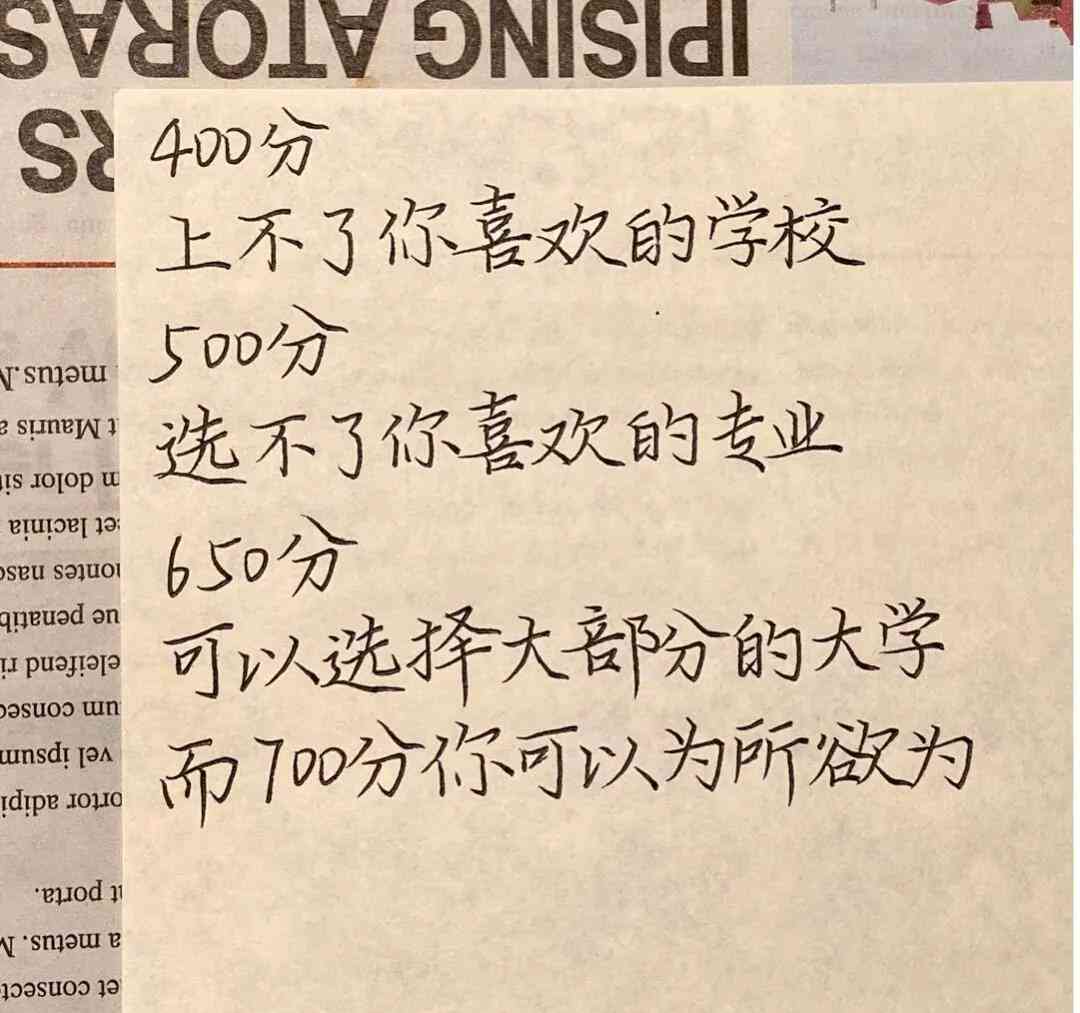 IPISING ATORAS
RS
metus.
t Mauris a
m dolor sit
et lacinia
montes nasc
ue penatib
eleifend ri
um consec
vel ipsum
tortor adipi
t porta.
a metus. M
et consect
400分
上不了你喜欢的学校
500分
选不了你喜欢的专业
650分
可以选择大部分的大学
而700分你可以为所欲为